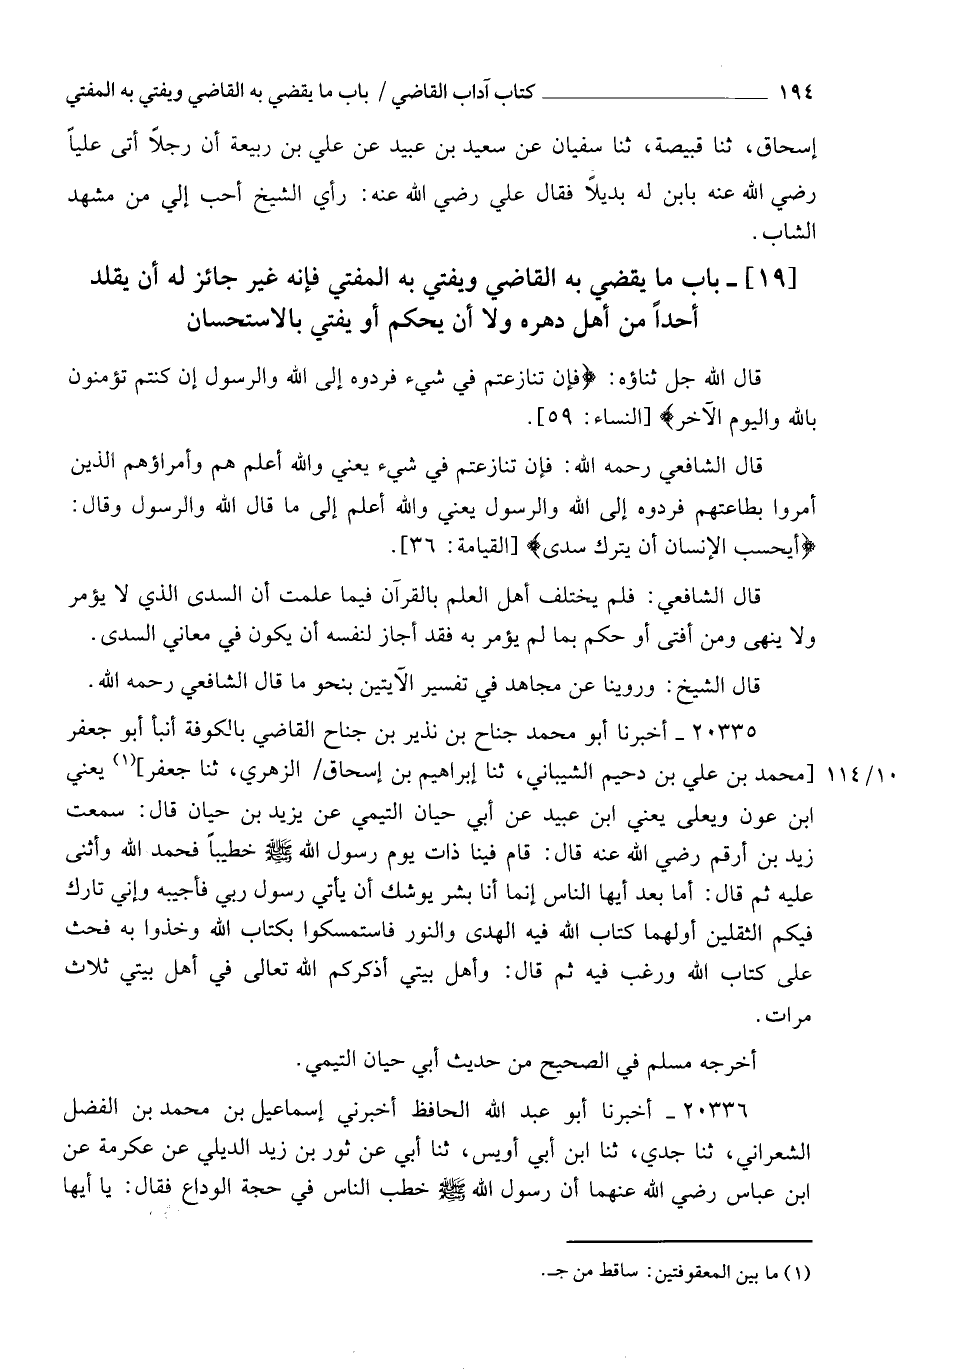 ١٩٤ ـــــــــــــــــــــــــــ كتاب آداب القاضي / باب ما يقضي به القاضي ويفتي به المفتي
إسحاق، ثنا قبيصة، ثنا سفيان عن سعيد بن عبيد عن علي بن ربيعة أن رجلاً أتى علياً
رضي الله عنه بابن له بديلاً فقال علي رضي الله عنه: رأي الشيخ أحب إلي من مشهد
الشاب.
[١٩] ـ باب ما يقضي به القاضي ويفتي به المفتي فإنه غير جائز له أن يقلد
أحداً من أهل دهره ولا أن يحكم أو يفتي بالاستحسان
قال الله جل ثناؤه: ﴿فإن تنازعتم في شيء فردوه إلى الله والرسول إن كنتم تؤمنون
بالله واليوم الآخر﴾ [النساء: ٥٩].
قال الشافعي رحمه الله: فإن تنازعتم في شيء يعني والله أعلم هم وأمراؤهم الذين
أمروا بطاعتهم فردوه إلى الله والرسول يعني والله أعلم إلى ما قال الله والرسول وقال:
﴿أيحسب الإنسان أن يترك سدى﴾ [القيامة: ٣٦].
قال الشافعي: فلم يختلف أهل العلم بالقرآن فيما علمت أن السدى الذي لا يؤمر
ولا ينهى ومن أفتى أو حكم بما لم يؤمر به فقد أجاز لنفسه أن يكون في معاني السدى.
قال الشيخ: وروينا عن مجاهد في تفسير الآيتين بنحو ما قال الشافعي رحمه الله.
٢٠٣٣٥ ـ أخبرنا أبو محمد جناح بن نذير بن جناح القاضي بالكوفة أنبأ أبو جعفر
١١٤/١٠ [محمد بن علي بن دحيم الشيباني، ثنا إبراهيم بن إسحاق/ الزهري، ثنا جعفر](١) يعني
ابن عون ويعلى يعني ابن عبيد عن أبي حيان التيمي عن يزيد بن حيان قال: سمعت
زيد بن أرقم رضي الله عنه قال: قام فينا ذات يوم رسول الله ﷺ خطيباً فحمد الله وأثنى
عليه ثم قال: أما بعد أيها الناس إنما أنا بشر يوشك أن يأتي رسول ربي فأجيبه وإني تارك
فيكم الثقلين أولهما كتاب الله فيه الهدى والنور فاستمسكوا بكتاب الله وخذوا به فحث
على كتاب الله ورغب فيه ثم قال: وأهل بيتي أذكركم الله تعالى في أهل بيتي ثلاث
مرات.
أخرجه مسلم في الصحيح من حديث أبي حيان التيمي.
٢٠٣٣٦ ـ أخبرنا أبو عبد الله الحافظ أخبرني إسماعيل بن محمد بن الفضل
الشعراني، ثنا جدي، ثنا ابن أبي أويس، ثنا أبي عن ثور بن زيد الديلي عن عكرمة عن
ابن عباس رضي الله عنهما أن رسول الله ﷺ خطب الناس في حجة الوداع فقال: يا أيها
(١) ما بين المعقوفتين: ساقط من جـ.